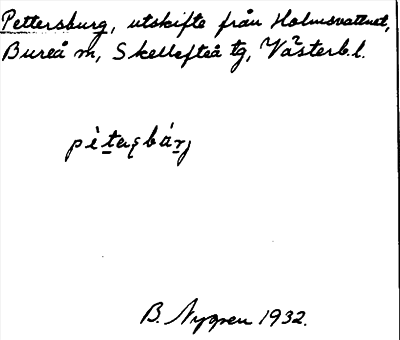 Pettersburg, utskifte från Holmsvattnet,
Bureå sn, Skellefteå tg, Västerb. l.
B. Nygren 1932.